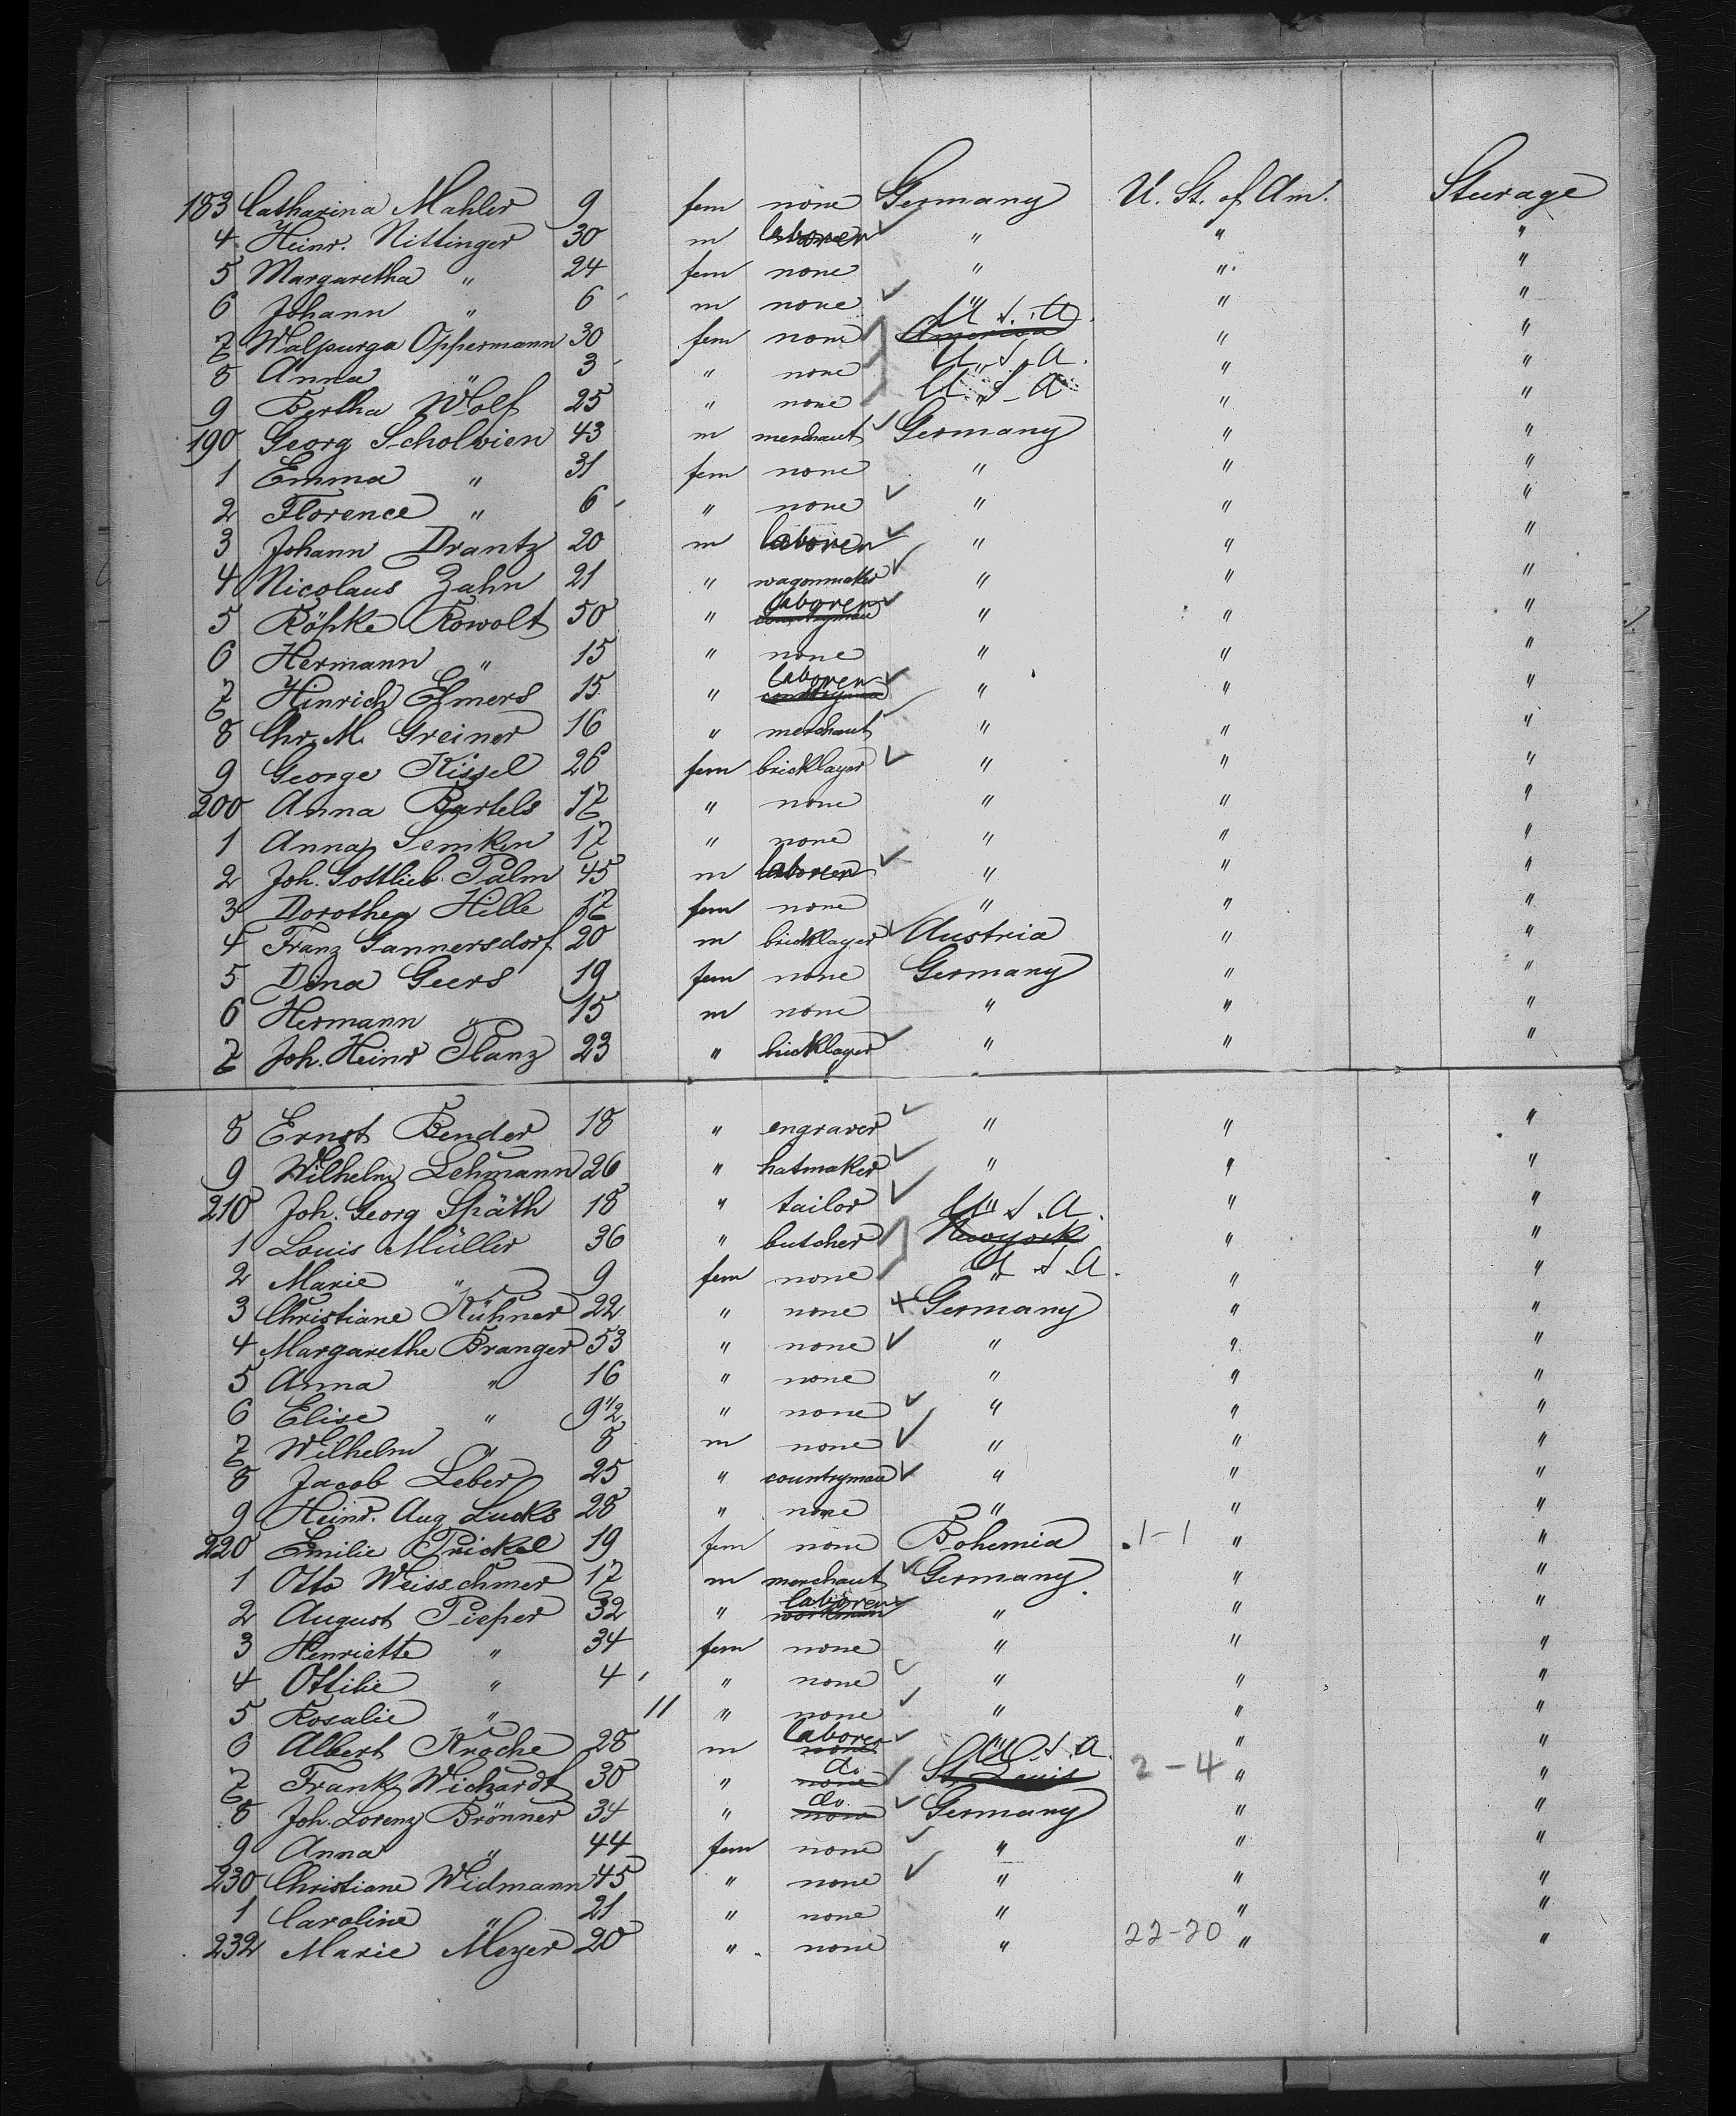 183 Catharina Mahler 9 fem none Germany U. St. of Am. Sturage
4 Heinr. Nittinger 30 m laborer " " "
5 Margaretha " 24 fem none " " "
6 Johann " 6 m none " " "
7 Walpurga Oppermann 30 fem none America U.S.A. " "
8 Anna " 3 " none U.S.A. " "
9 Bertha Wolf 25 " none U.S.A. " "
190 Georg Scholvien 43 m merchant Germany " "
1 Emma " 31 fem none " " "
2 Florence " 6 " none " " "
3 Johann Drantz 20 m laborer " " "
4 Nicolaus Zahn 21 " wagonmaker " " "
5 Röpke Rowolt 50 " countryman laborer " " "
6 Hermann " 15 " none " " "
7 Hinrich Elmers 15 " countryman laborer " " "
8 Chr. M. Greiner 16 " merchant " " "
9 George Kissel 26 fem bricklayer " " "
200 Anna Bartels 17 " none " " "
1 Anna Semken 17 " none " " "
2 Joh. Gottlieb Palm 45 m laborer " " "
3 Dorothea Hille 17 fem none " " "
4 Franz Gannersdorf 20 m bricklayer Austria " "
5 Dina Geers 19 fem none Germany " "
6 Hermann " 15 m none " " "
7 Joh. Heinr Planz 23 " bricklayer " " "
8 Ernst Bender 18 " engraver " " "
9 Wilhelm Lehmann 26 " hatmaker " " "
210 Joh. Georg Späth 18 " tailor " " "
1 Louis Müller 36 " butcher Newyork U.S.A. " "
2 Marie " 9 fem none U.S.A. " "
3 Christiane Kühner 22 " none Germany " "
4 Margarethe Branger 53 " none " " "
5 Anna " 16 " none " " "
6 Elise " 9 1/2 " none " " "
7 Wilhelm 8 m none " " "
8 Jacob Leber 25 " countryman " " "
9 Heinr. Aug Lucks 28 " none " " "
220 Emilie Prickel 19 fem none Bohemia 1-1 " "
1 Otto Weisschmer 17 m merchant Germany " "
2 August Pieper 32 " workman laborer " " "
3 Henriette " 34 fem none " " "
4 Ottilie " 4 " none " " "
5 Rosalie " 11 " none " " "
6 Albert Kroche 28 m none laborer " " "
7 Frank Wichardt 30 " none do. St Louis U.S.A. 2-4 " "
8 Joh. Lorenz Brönner 34 " none do. Germany " "
9 Anna " 44 fem none " " "
230 Christiane Widmann 45 " none " " "
1 Caroline " 21 " none " " "
232 Marie Meyer 20 " none " 22-20 " "